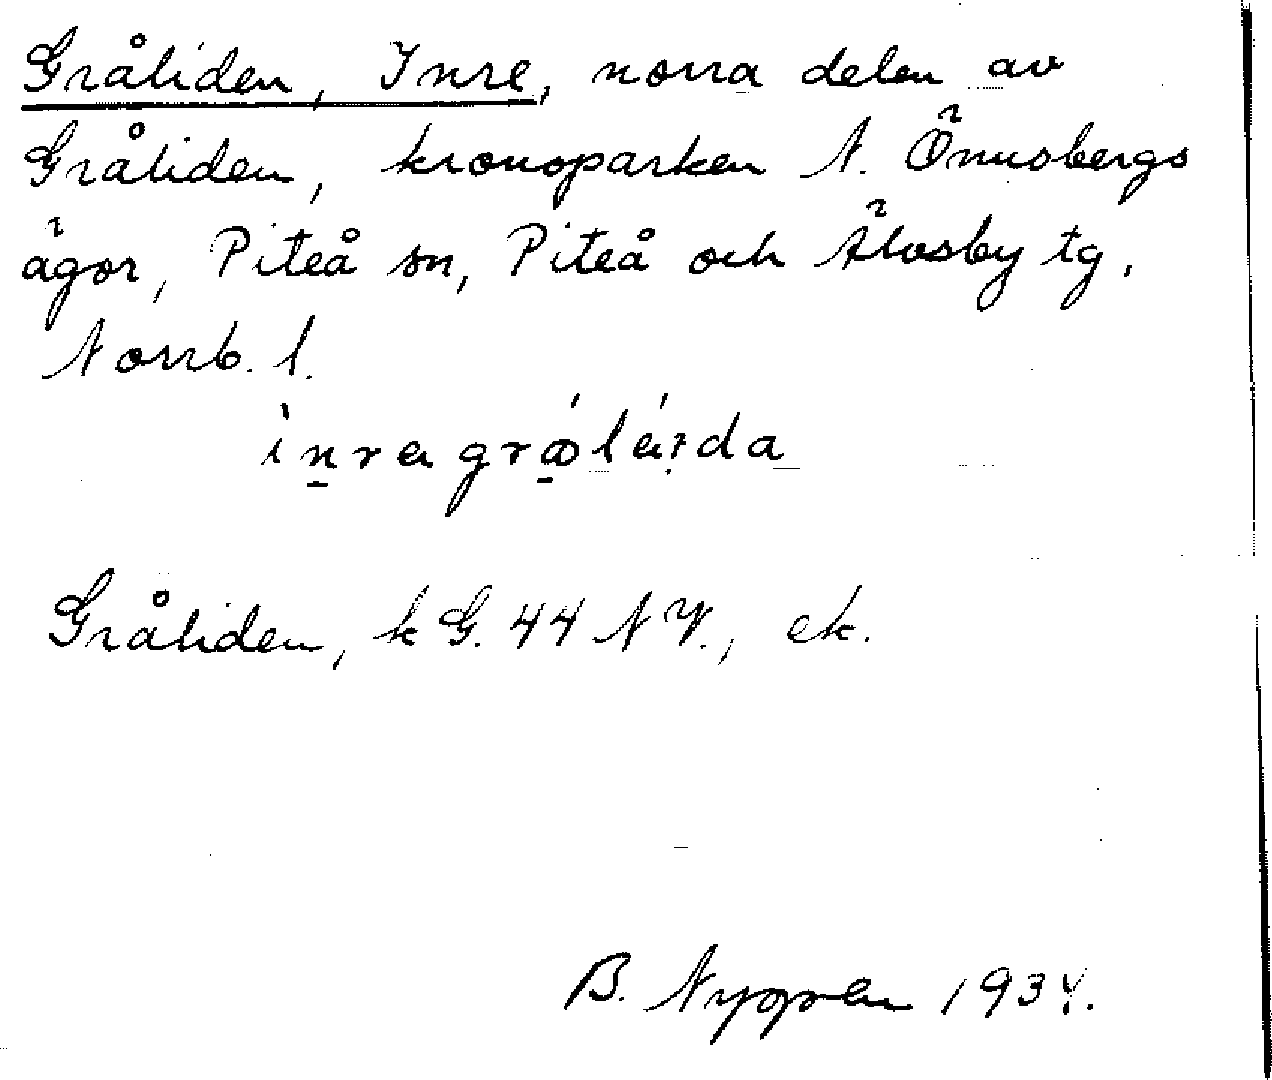 Gråliden, Inre, norra delen av
Gråliden, kronoparken N. Önusbergs
ägor, Piteå sn, Piteå och Älvsby tg,
Norrb. l.
Gråliden, k G. 44 NV., ek.
B. Nygren 1934.